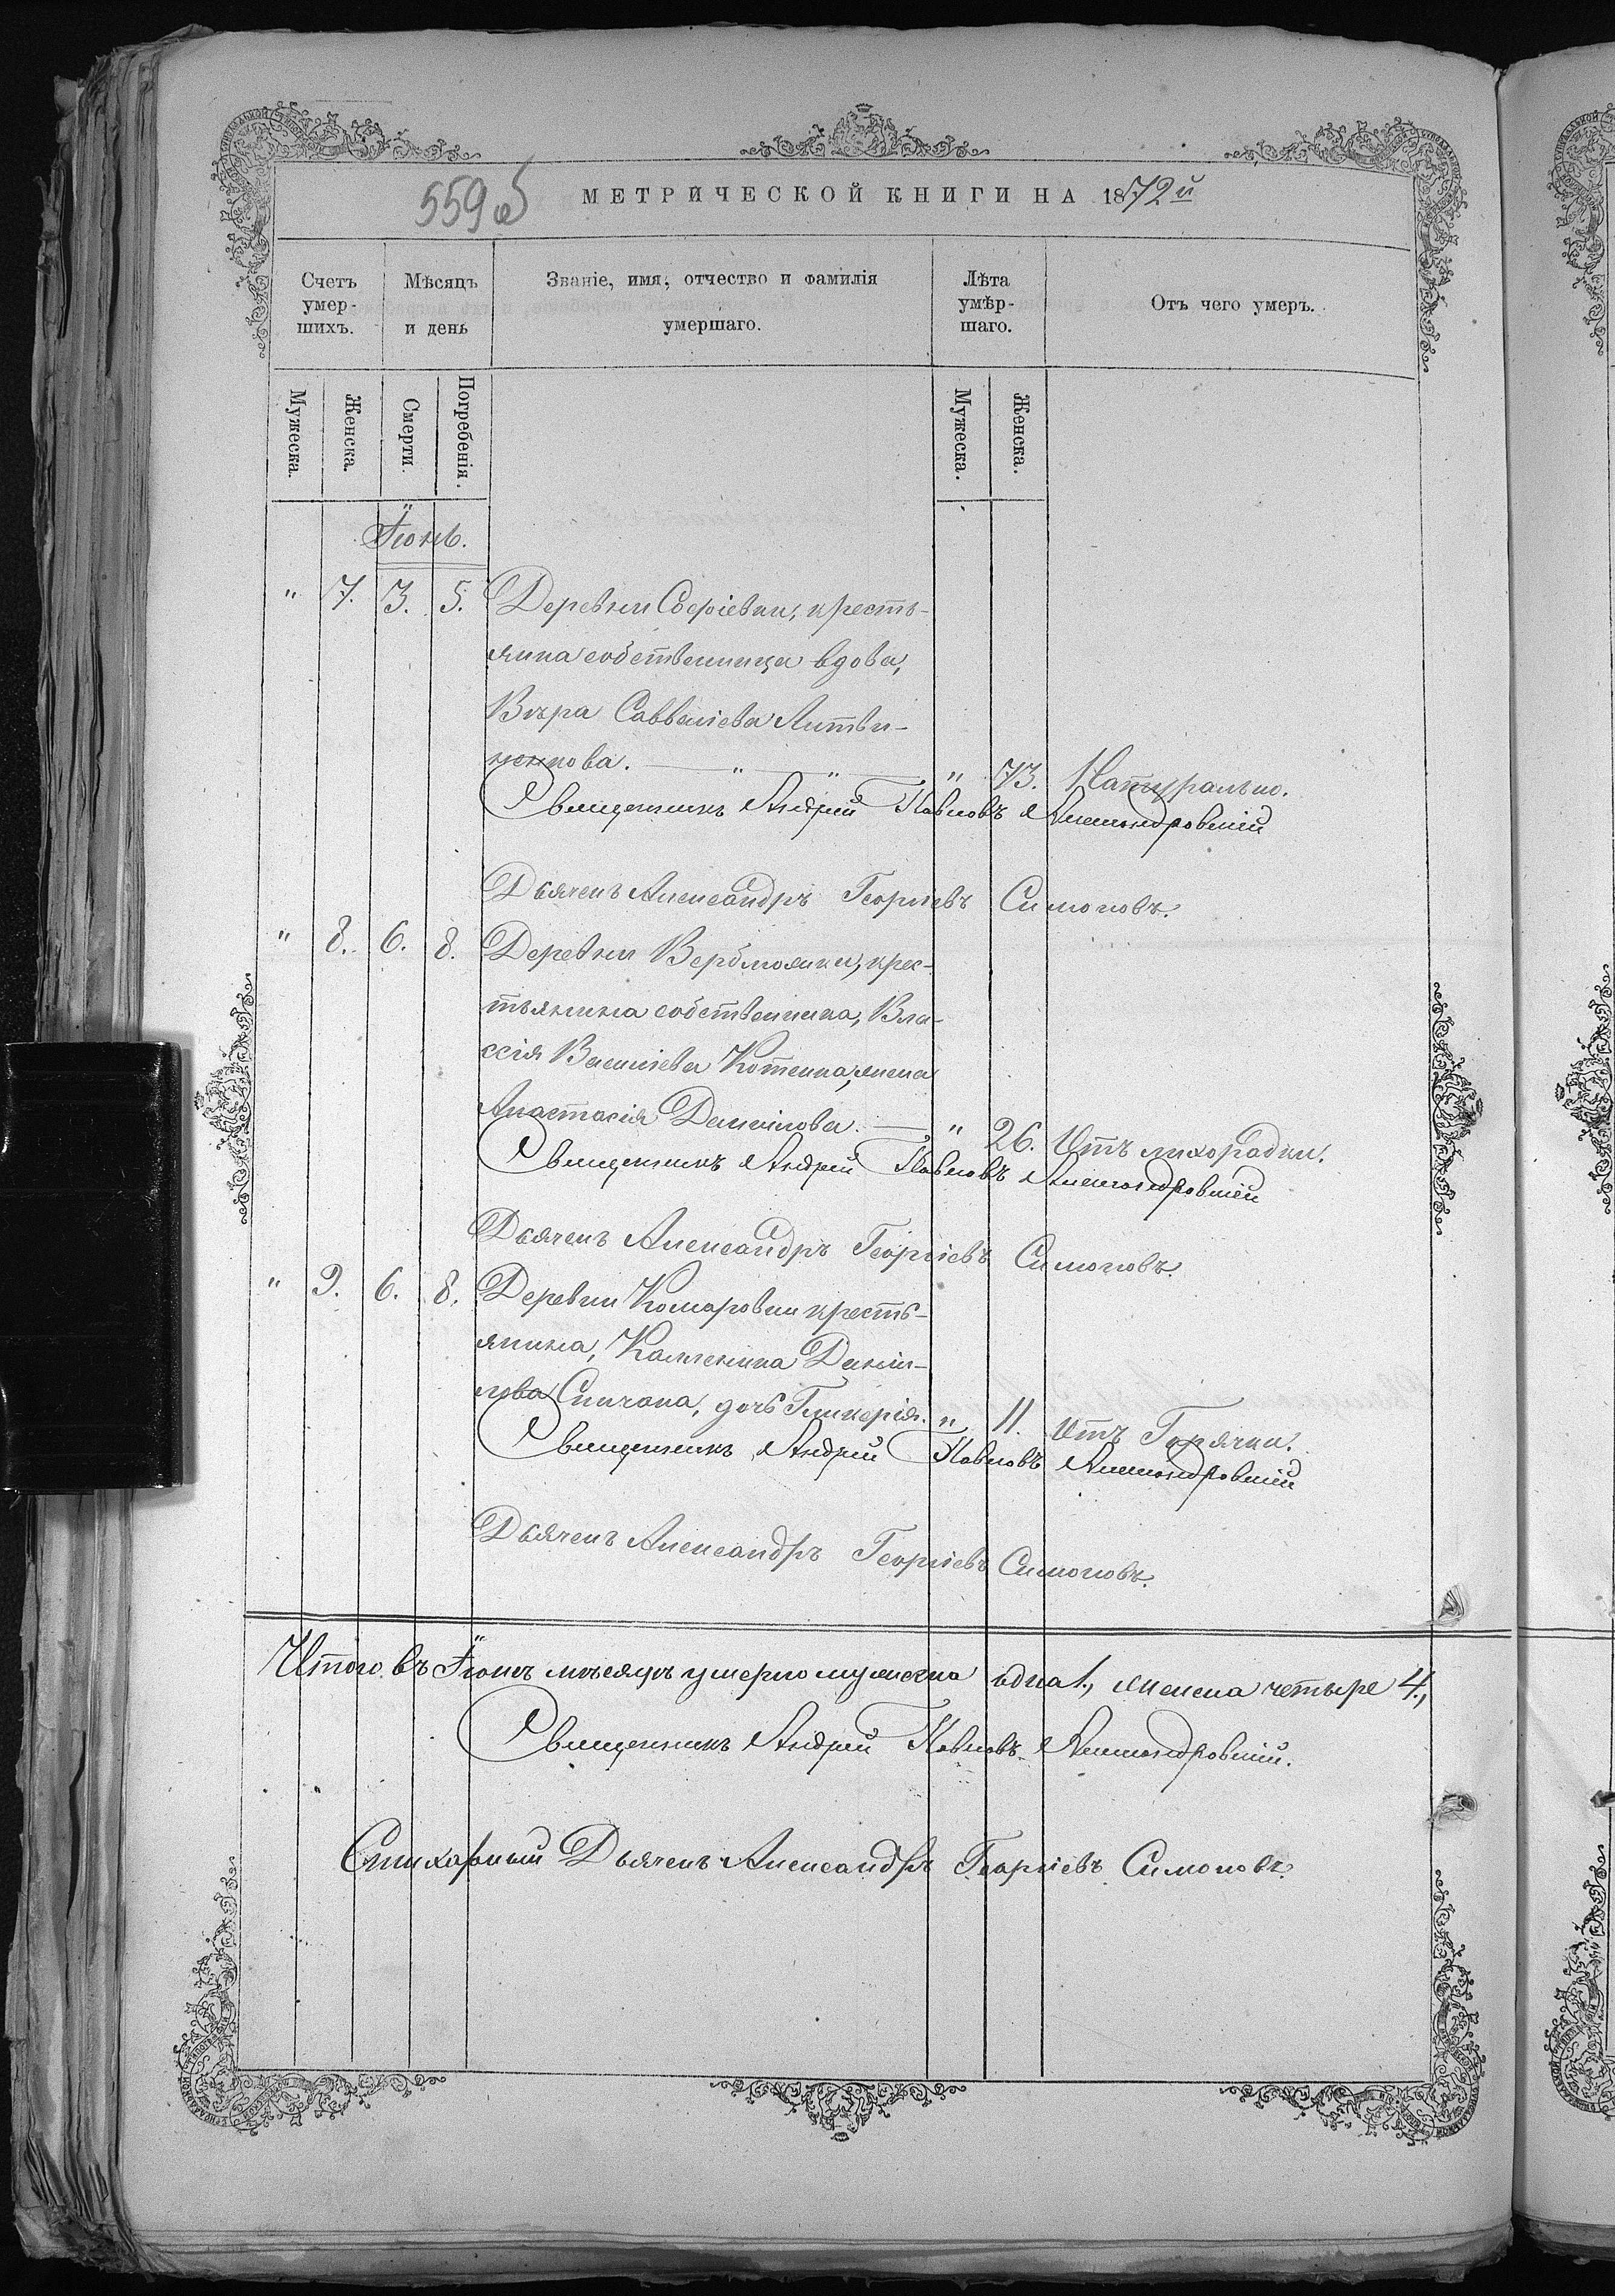 559 об
МЕТРИЧЕСКОЙ КНИГИ НА 1872й
Счетъ умер-шихъ.
Мѣсяцъ и день
Званіе, имя, отчество и фамилія умершаго.
Лѣта умѣр-шаго.
Отъ чего умеръ.
Мужеска. Женска. Смерти. Погребенія. Мужеска. Женска.
Іюнь.
" 7. 3. 5. Деревни Софіевки, кресть-
янина собственница вдова,
Вѣра Савеліева Литви-
ненкова. — " — " — " 73. Натурально.
Священникъ Андрей Павловъ Александровскій
Дьячекъ Александръ Георгіевъ Симоновъ.
" 8. 6. 8. Деревни Верблюжки, крес-
тьянина собственника, Вла-
ссія Василіева Котенка, жена
Анастасія Даниілова. — " 26. Отъ лихорадки.
Священникъ Андрей Павловъ Александровскій
Дьячекъ Александръ Георгіевъ Симоновъ.
" 9. 6. 8. Деревни Комаровки кресть-
янина, Каленика Даніи-
лова Сичкана, дочь Гликерія. " 11. Отъ Горячки.
Священникъ Андрей Павловъ Александровскій
Дьячекъ Александръ Георгіевъ Симоновъ.
Итого въ Іюнѣ мѣсяцѣ умерло мужеска одна 1., женска четыре 4.,
Священникъ Андрей Павловъ Александровскій.
Стихарный Дьячекъ Александръ Георгіевъ Симоновъ.